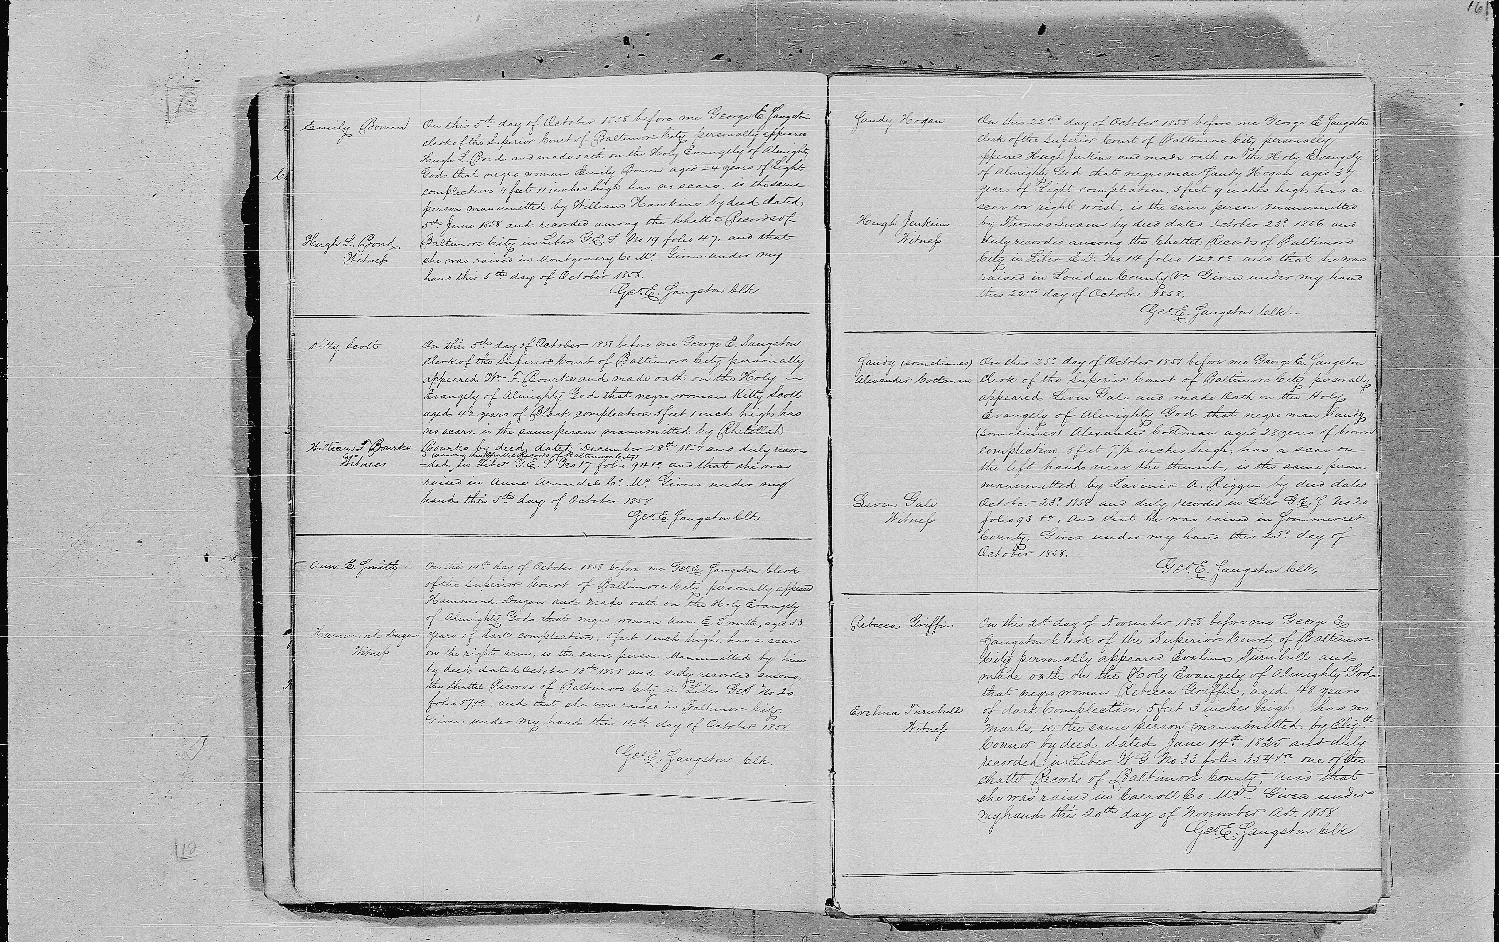 Emily Bowen
On this 5th day of October 1858 before me George E. Sangston
clerk of the Superior Court of Baltimore City, personally appeared
Hugh L. Bond and made oath on the Holy Evangely of Almighty
God that negro woman Emily Bowen aged years of Light
complection 4 feet 11 inches high has no scars, is the same
person manumitted by William Hawkins by deed dated
5th June 1858 and recorded among the Chattel Records of
Baltimore City in Liber G.E.S. No 19 folio 47. and that
she was raised in Montgomery Co. Md. Given under my
hand this 5th day of October 1858.
Geo. E. Sangston Clk
Hugh L. Bond
Witness
Kitty Scott
On this 5th day of October 1858 before me George E. Sangston
Clerk of the Superior Court of Baltimore City, personally
appeared Wm. F. Bourke and made oath on the Holy
Evangely of Almighty God that negro woman Kitty Scott
aged 42 years of Black complection 5 feet 1 inch high has
no scars, is the same person manumitted by
Bourke by deed dated December 28th and duly recor-
among Chattel Records of Baltimore City
-ded in Liber G.E.S. No 17 folio and that she was
raised in Anne Arundel Co. Md. Given under my
hand this 5th day of October 1858
Geo. E. Sangston Clk.
William F. Bourke
Witness
Ann E. Smith
On this day of October 1858 before me Geo. E. Sangston Clerk
of the Superior Court of Baltimore City, personally appeared
Hammond Dugan and made oath on the Holy Evangely
of Almighty God that negro woman Ann E. Smith, aged
years of dark complection, 5 feet 1 inch high, has a scar
on the right arm, is the same person Manumitted by him
by deed dated October 1858 and duly recorded among
the Chattel Records of Baltimore City in Liber G.E.S. No 20
folio and that she was raised in Baltimore City.
Given under my hand this day of October 1858
Geo. E. Sangston Clk.
Hammond Dugan
Witness
Sandy Hogan
On this 22nd day of October 1858 before me George E. Sangston
clerk of the Superior Court of Baltimore City personally
appeared Hugh Jenkins and made oath on the Holy Evangely
of Almighty God that negro man Sandy Hogan aged
years of Light complection, 5 feet 9 inches high has a
scar on right wrist, is the same person manumitted
by Thomas Swann by deed dated October 23d 1856 and
duly recorded among the Chattel Records of Baltimore
City in Liber E.D. No 14 folio and that he was
raised in Loudon County Va. Given under my hand
this 22nd day of October 1858.
Geo. E. Sangston Clk.
Hugh Jenkins
Witness
Sandy (sometimes)
Alexander Cottman
On this 25th day of October 1858 before me George E. Sangston
Clerk of the Superior Court of Baltimore City personally
appeared Levin Gale and made oath on the Holy
Evangely of Almighty God that negro man Sandy
(sometimes) Alexander Cottman aged 28 years of brown
complection, 5 feet inches high, has a scar on
the left hand near the thumb, is the same person
manumitted by A. Riggin by deed dated
October 23d 1858 and duly recorded in Liber G.E.S. No 20
folio 93 and that he was raised in Sommerset
County. Given under my hand this 25th day of
October 1858.
Geo. E. Sangston Clk.
Levin Gale
Witness
Rebecca Griffin
On this 20th day of November 1858 before me George E.
Sangston Clerk of the Superior Court of Baltimore
City personally appeared Evelina Turnbull and
made oath on the Holy Evangely of Almighty God
that negro woman Rebecca Griffin, aged 48 years
of dark complection 5 feet 3 inches high has no
marks, is the same person manumitted by Elizth
Connor by deed dated June 14th 1825 and duly
recorded in Liber W.G. No 33 folio one of the
Chattel Records of Baltimore County and that
she was raised in Carroll Co. Md. Given under
my hand this 20th day of November A.D. 1858
Geo. E. Sangston Clk
Evelina Turnbull
Witness